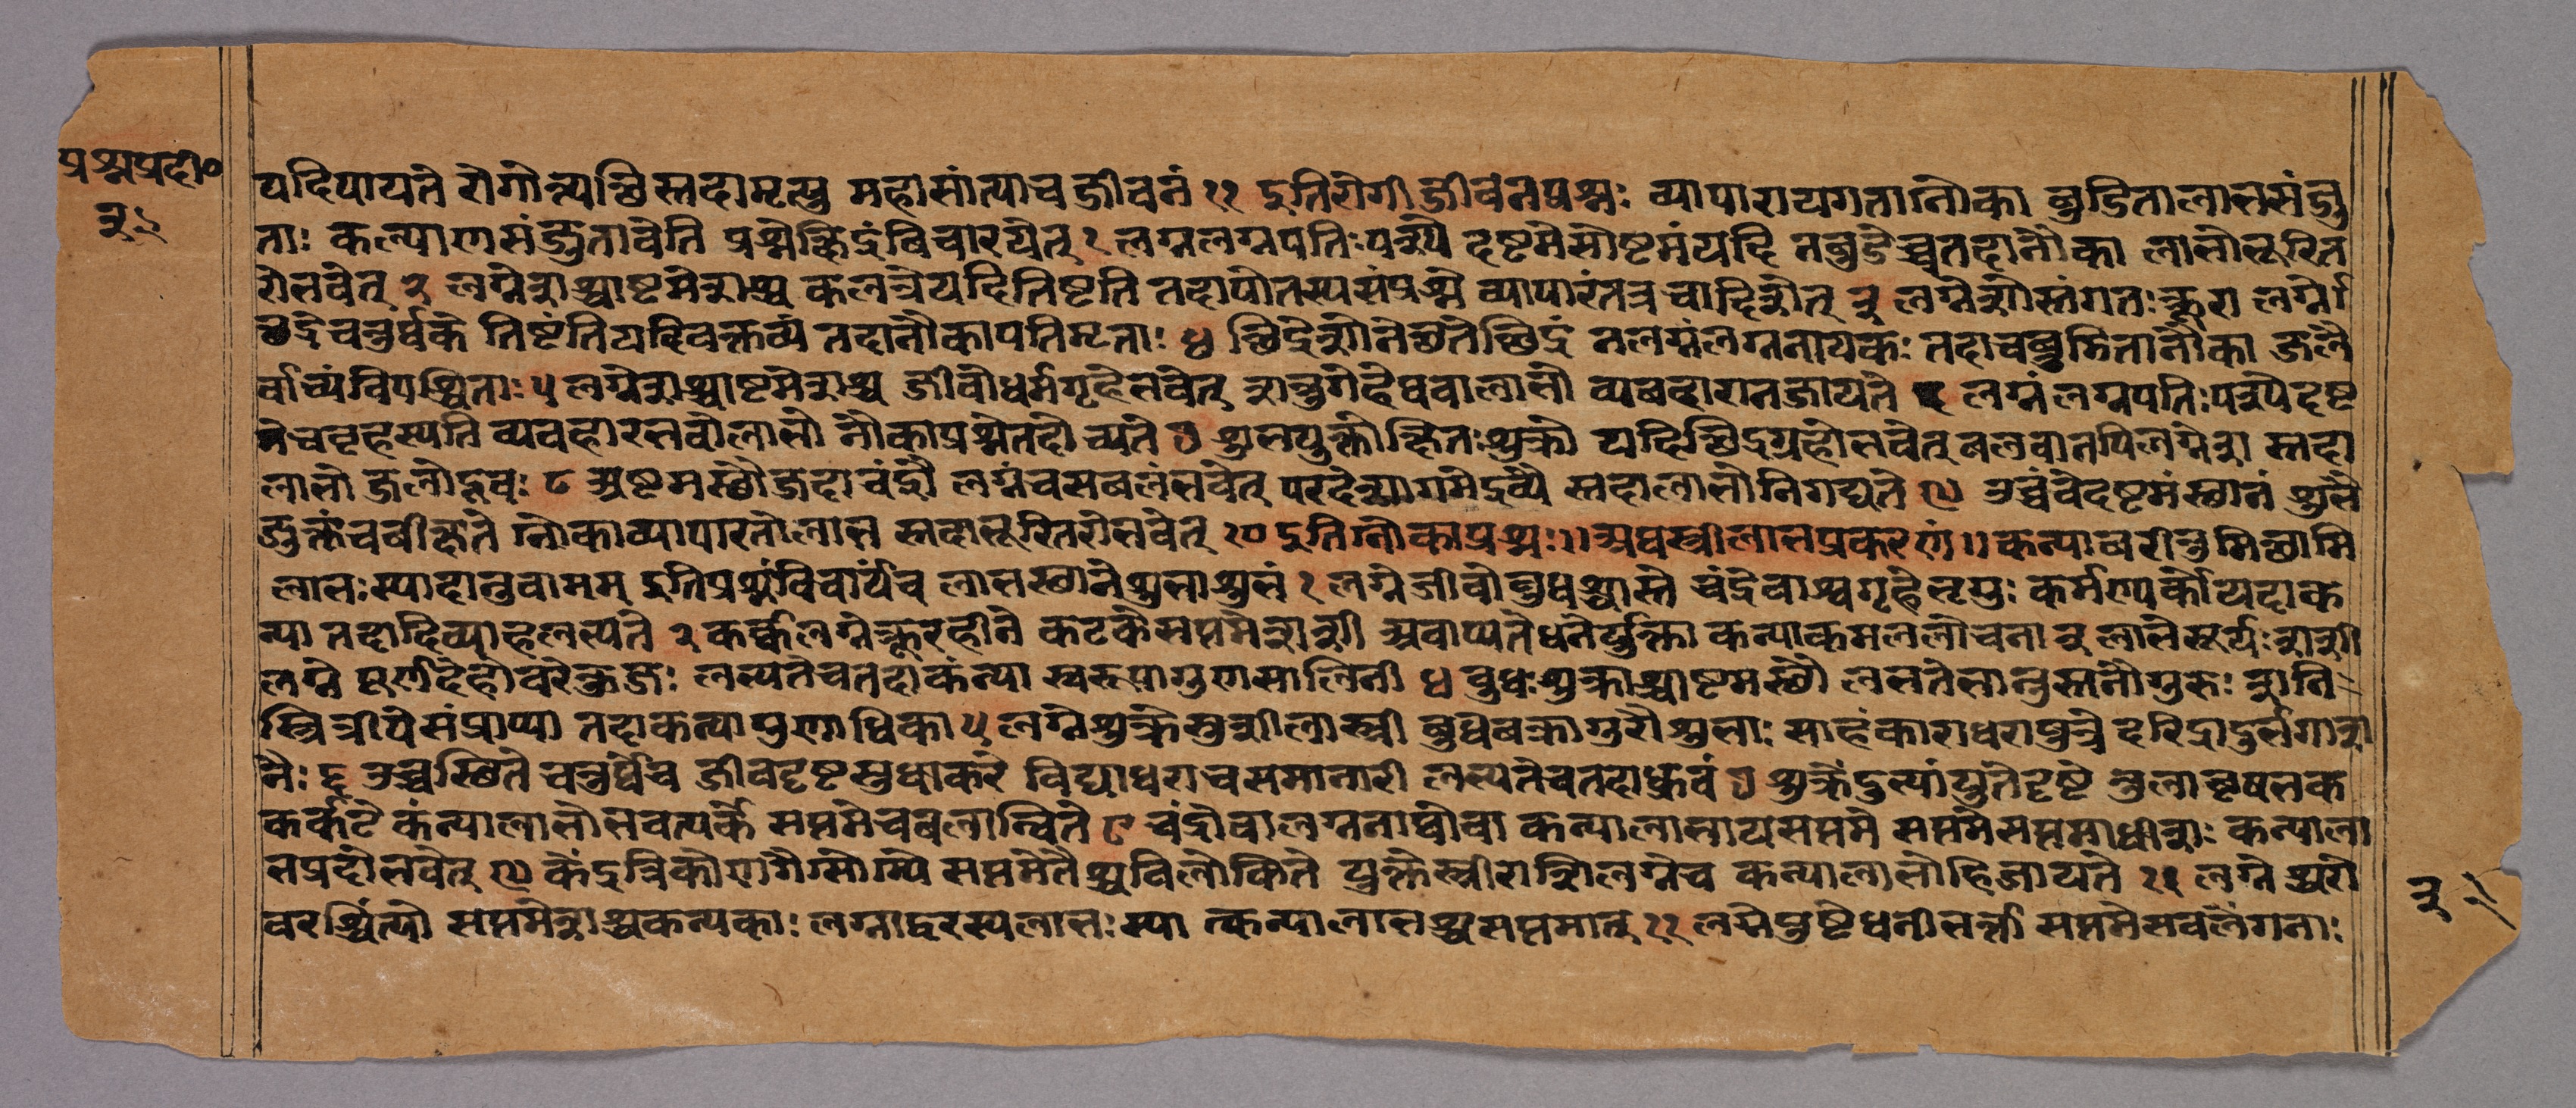 प्रश्नप्रदी०
३२
यदिपायते रोगोत्पत्तिस्तदामृत्यु महासांत्याच जीवनं ११ इतिरोगीजीवनप्रश्नः व्यापारायगतानौका बुडितालाभसंजु
ताः कल्याणसंजुतावेति प्रश्नेह्निद्रंविचारयेत् १ लग्नलग्नपतिःपश्ये दष्टमेसोष्टमंयदि नबुडेच्चतदानौका लाभोभूरित
रोभवेत् २ लग्नेशश्चाष्टमेशश्च कलत्रेयदितिष्टति तदापोतस्यसंप्रश्ने व्यापारंतत्र लग्नेशोस्तंगतःक्रूरा लग्ने
छिद्रेचतुर्थके तिष्टंतियदिवक्तव्यं तदानौकापतिमृताः ४ छिद्रेशोनेक्षतेछिद्रं नलग्नंलग्ननायकः तदाचबुडितानौका जले
र्वाच्यंविपश्चिताः ५ लग्नेशश्चाष्टमेशश्च जीवोधर्मगृहेभवेत् लग्नंलग्नपतिःपश्येदष्ट
मेचबृहस्पति व्यवहारभवोलाभो नौकाप्रश्नेतदोच्यते ७ शुभयुक्तोह्नितःशुक्रो यदिछिद्रग्रहोभवेत् बलवानपिलग्नेश स्तदा
लाभो जलोद्भवः ८ अष्टमस्थौजदाचंद्रो लग्नंचसबलंभवेत् परदेशागमेद्रव्ये स्तदालाभोनिगद्यते ९ उच्चंवेदष्टमंस्थानं शुभे
जुक्तंचवीक्षते नौकाव्यापारतोलाभ स्तदाभूरितरोभवेत् १० इतिनौकाप्रश्नः॥अथस्त्रीलाभप्रकरणं॥कन्यावरीतुमिछामि
लाभःस्याद्वानुवामम् इतिप्रश्नंविचार्यैव लाभस्थानेशुभाशुभं १ लग्नेजीवोबुधश्चास्ते चंद्रेवाश्वगृहेभृगुः कर्मण्यर्कोयदाक
न्या तदादिव्याहलभ्यते २ कर्कलग्नेक्रूरहीने कटकेसप्तमेशशी अवाप्यतेधनैर्युक्ता कन्याकमललोचना ३ लाभेसूर्यःशशी
लग्ने लभ्यतेचतदाकन्या स्वरूपागुणसालिनी ४ बुधःशुक्राश्चाष्टमस्थौ लभतेलाभुस्तनौगुरुः
संप्राप्या तदाकन्यागुणाधिका ५ लग्नेशुक्रेसुशीलास्त्री बुधेवक्रागुरौशुभाः साहंकाराधरापुत्रे दरिद्रादुर्भगाश
नैः ६ उच्चस्थिते चतुर्थेच जीवदृष्टसुधाकरे विद्याधराचसमानारी लभ्यतेचतदाध्रुवं ७ शुक्रेंदुभ्यांयुतेदृष्टे तुलावृषभक
कर्कटे कन्यालाभोभवत्यर्के सप्तमेचबलान्विते ८ चंद्रोवालग्ननाथोवा कन्यालाभायसप्तमे सप्तमेसप्तमाधीशः कन्याला
भप्रदोभवेत् ९ केंद्रत्रिकोणगैःसौम्ये सप्तमेतैश्चविलोकिते युक्तेस्त्रीराशिलग्नेच कन्यालाभोहिजायते ११ लग्नेश्वरो
वरश्चिंत्यो सप्तमेशश्चकन्यकाः लग्नाद्वरस्यलाभःस्या त्कन्यालाभश्चसप्तमात् ११ लग्नेपुष्टेधनीभर्त्ता
३२